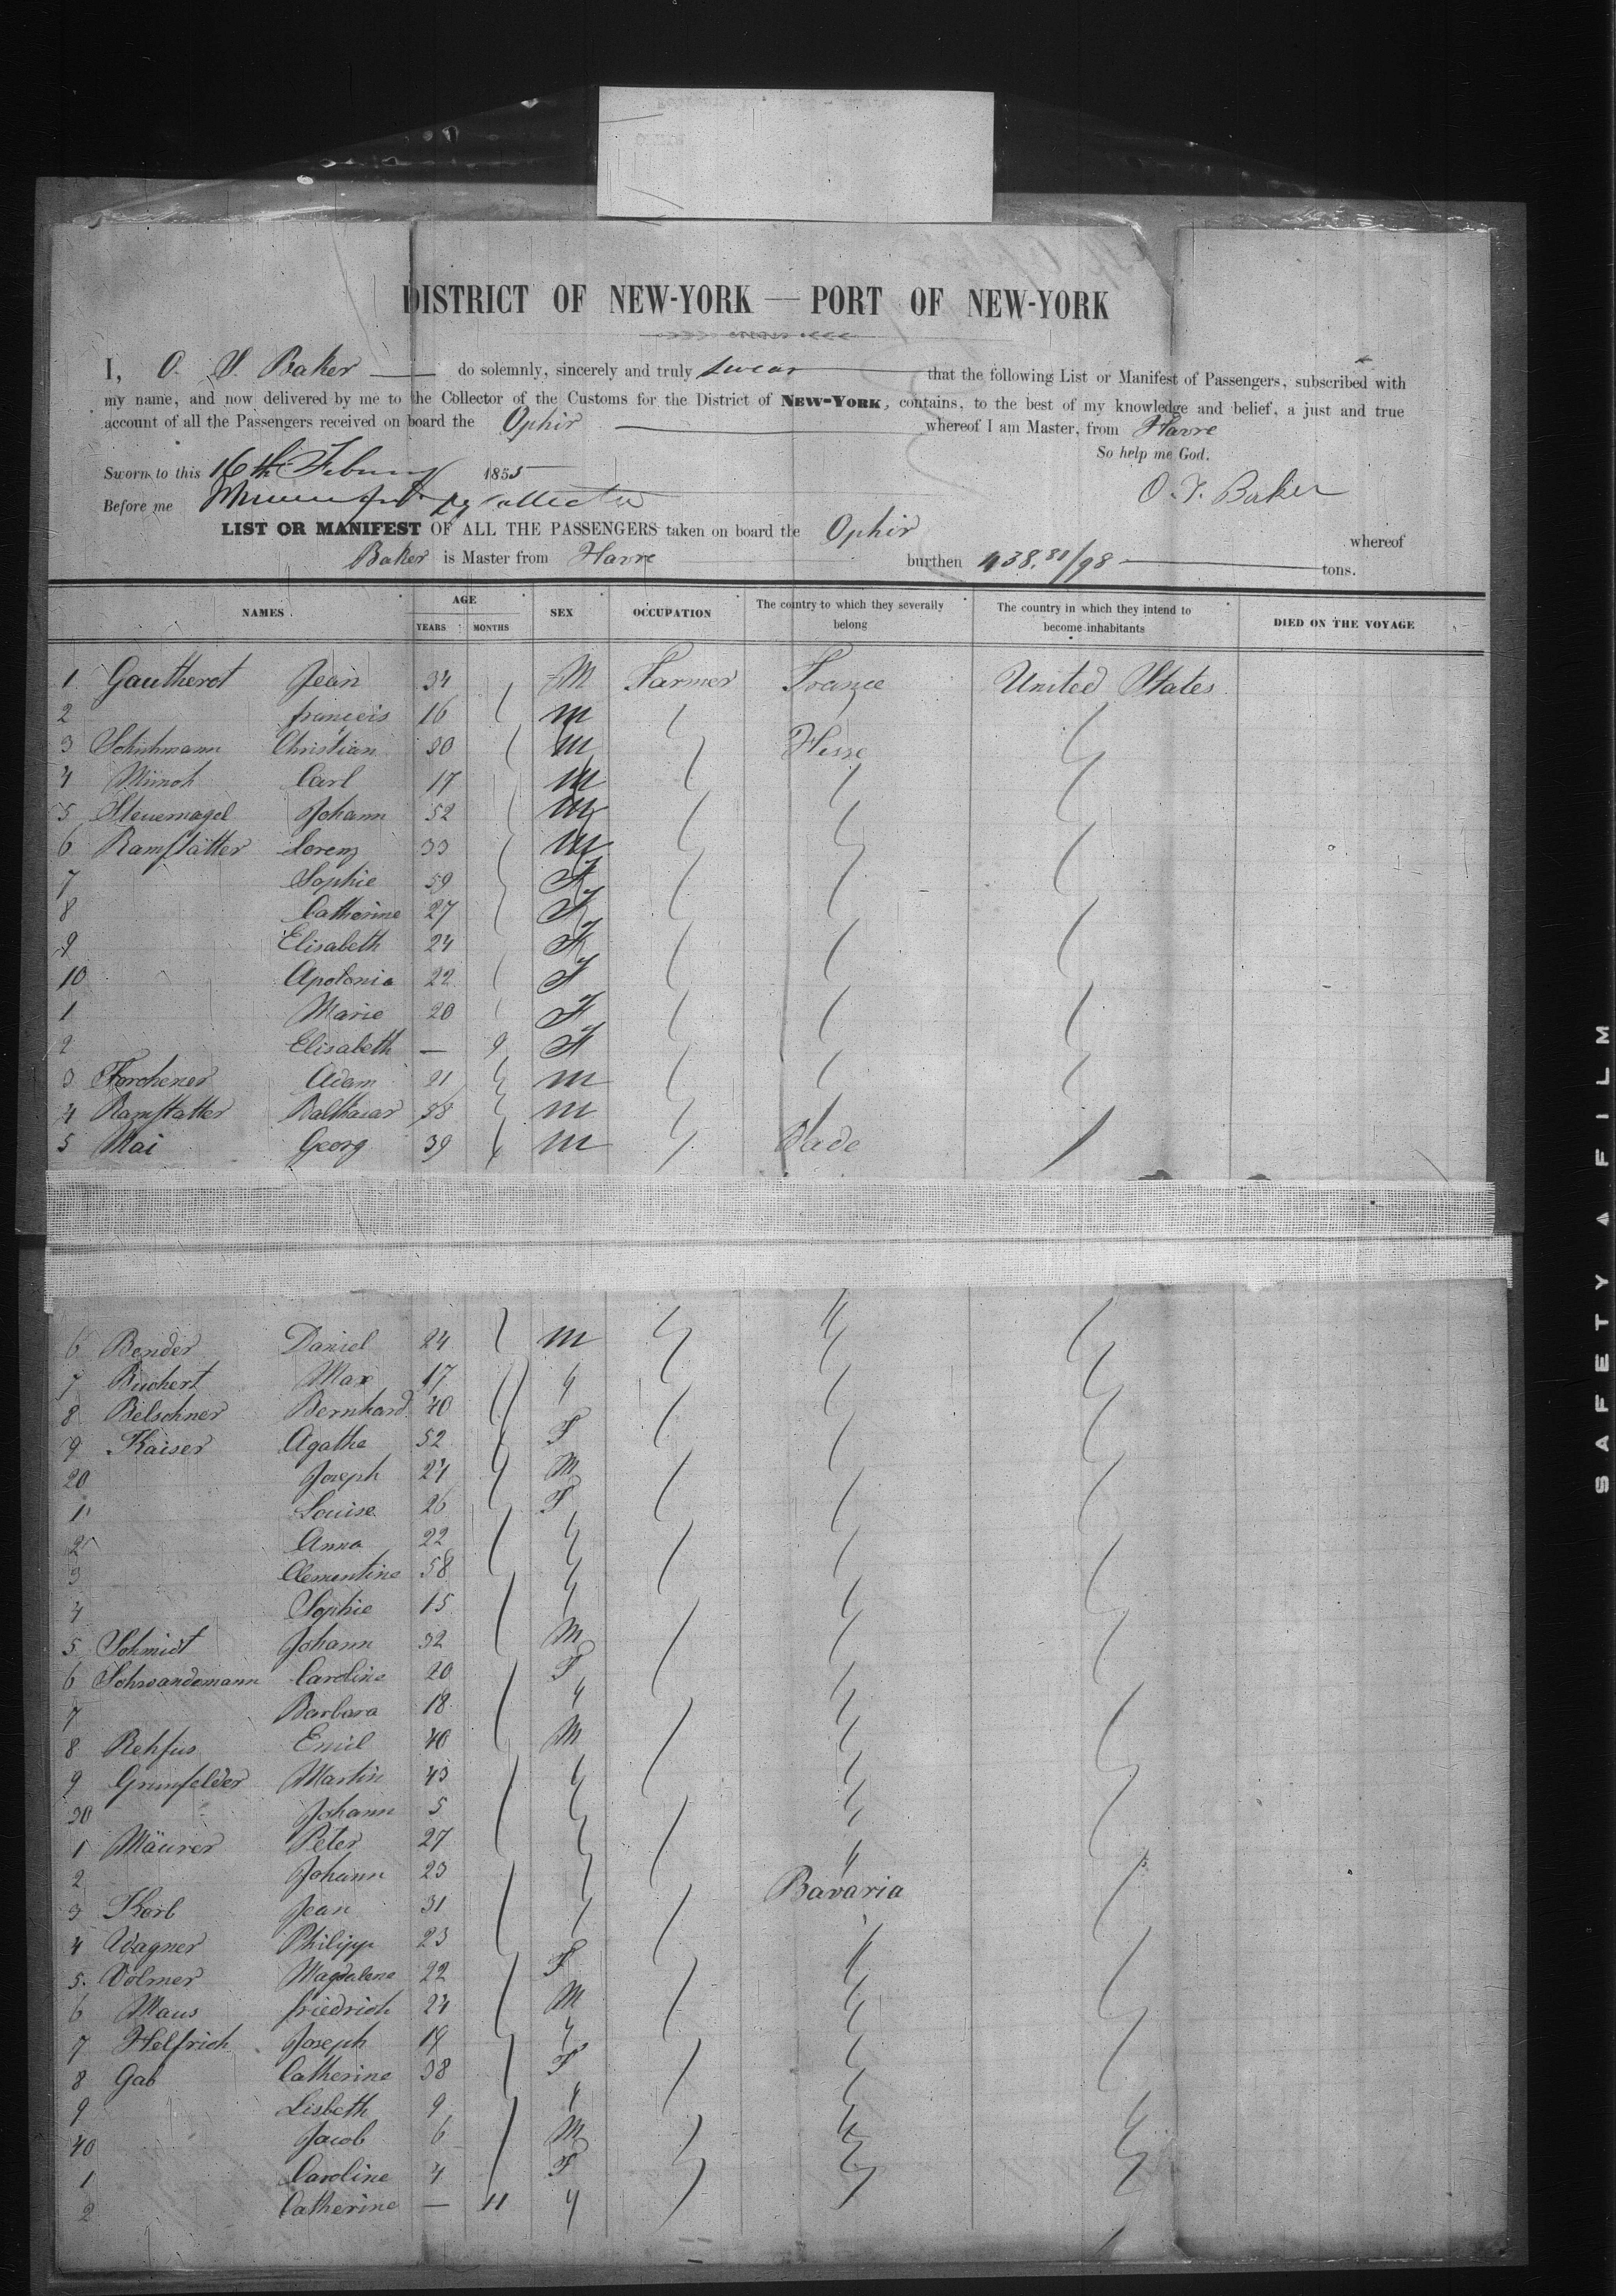 DISTRICT OF NEW-YORK — PORT OF NEW-YORK
I, O. S. Baker do solemnly, sincerely and truly swear that the following List or Manifest of Passengers, subscribed with
my name, and now delivered by me to the Collector of the Customs for the District of NEW-YORK, contains, to the best of my knowledge and belief, a just and true
account of all the Passengers received on board the Ophir whereof I am Master, from Havre
So help me God.
Sworn to this 16th 1855
O. S. Baker
Before me
LIST OR MANIFEST OF ALL THE PASSENGERS taken on board the Ophir whereof
Baker is Master from Havre burthen 438.81/98 tons.
NAMES AGE YEARS MONTHS SEX OCCUPATION The country to which they severally belong The country in which they intend to become inhabitants DIED ON THE VOYAGE
1 Gautherot Jean 34 M Farmer France United States
2 françois 16 M
3 Schuhmann Christian 30 M Hesse
4 Münch Carl 17 M
5 Steuernagel Johann 52 M
6 Ramstätter Lorenz 33 M
7 Sophie 59 F
8 Catherine 27 F
9 Elisabeth 24 F
10 Apolonia 22 F
1 Marie 20 F
2 Elisabeth — 9 F
3 Adam 21 M
4 Ramstatter Balthasar 58 M
5 Mai Georg 39 M Bade
6 Bender Daniel 24 M
7 Buchert Max 17 "
8 Belschner Bernhard 40
9 Kaiser Agathe 52 F
20 Joseph 24 M
1 Louise 26 F
2 Anna 22
3 Clementine 58
4 Sophie 15
5 Schmidt Johann 32 M
6 Schwandemann Caroline 20 F
7 Barbara 18 "
8 Rehfus Emil 40 M
9 Grimfelder Martin 43
30 Johann 5
1 Mäurer Peter 27 "
2 Johann 23
3 Korb Jean 31 Bavaria
4 Wagner Philipp 23
5 Volmer Magdalena 22 F "
6 Maus friedrich 24 M
7 Helfrich Joseph 19 "
8 Gab Catherine 38 F
9 Lisbeth 9 "
40 Jacob 6 M
1 Caroline 4 F
2 Catherine — 11 "
SAFETY FILM